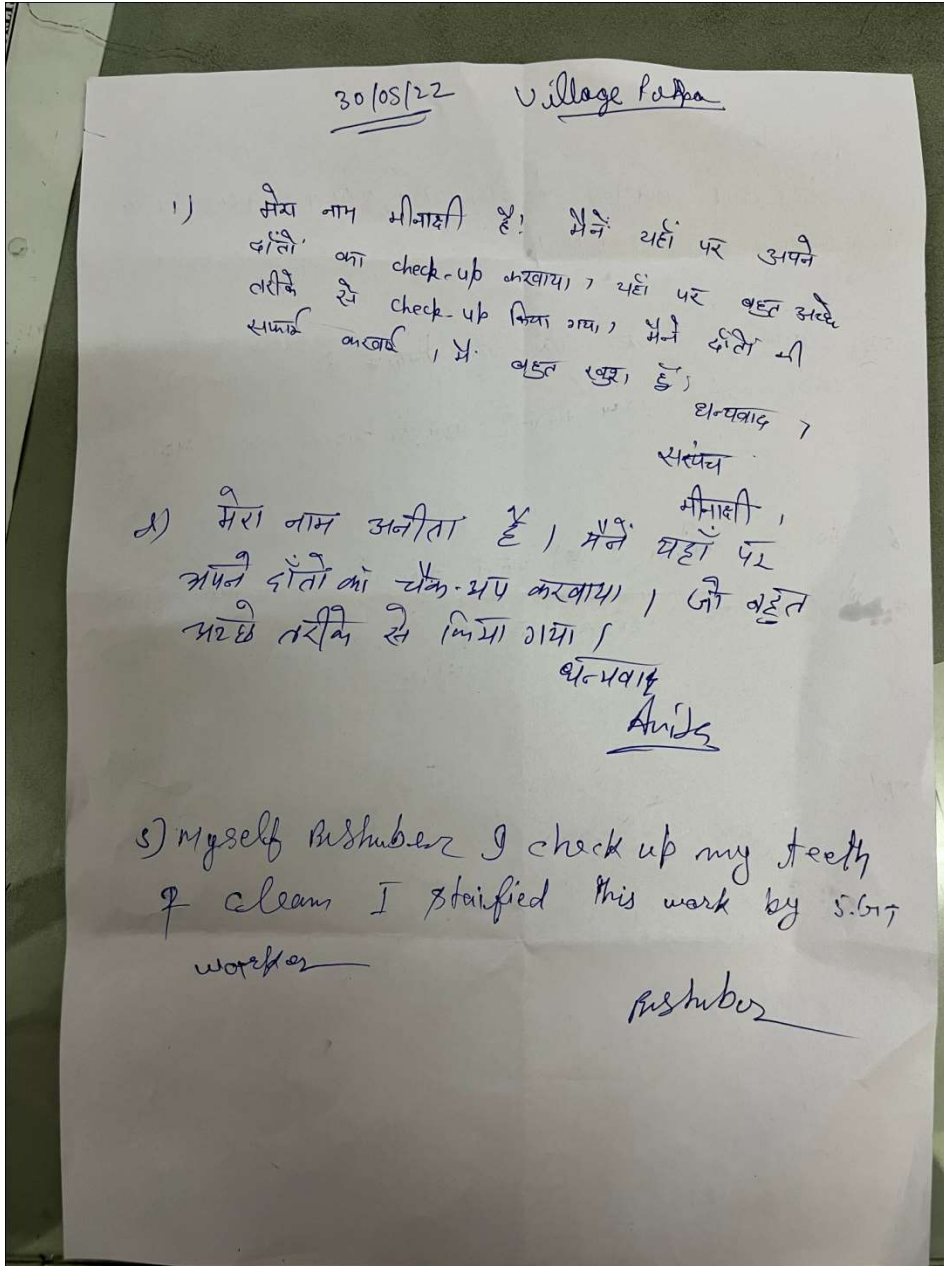 30/05/22 Village
1) मेरा नाम मीनाक्षी है! मैनें यहाँ पर अपने
दाँतों का check-up करवाया, यहाँ पर बहुत अच्छे
तरीके से check-up किया गया, मैने दाँतों की
सफाई करवाई, मैं बहुत खुश हूँ,
धन्यवाद,
सरपंच
मीनाक्षी,
2) मेरा नाम अनीता है। मैनें यहाँ पर
अपने दाँतों का चैक-अप करवाया। जो बहुत
अच्छे तरीके से किया गया।
धन्यवाद
Anita
3) Myself I check up my teeth
& clean I staified this work by S.G.T
worker